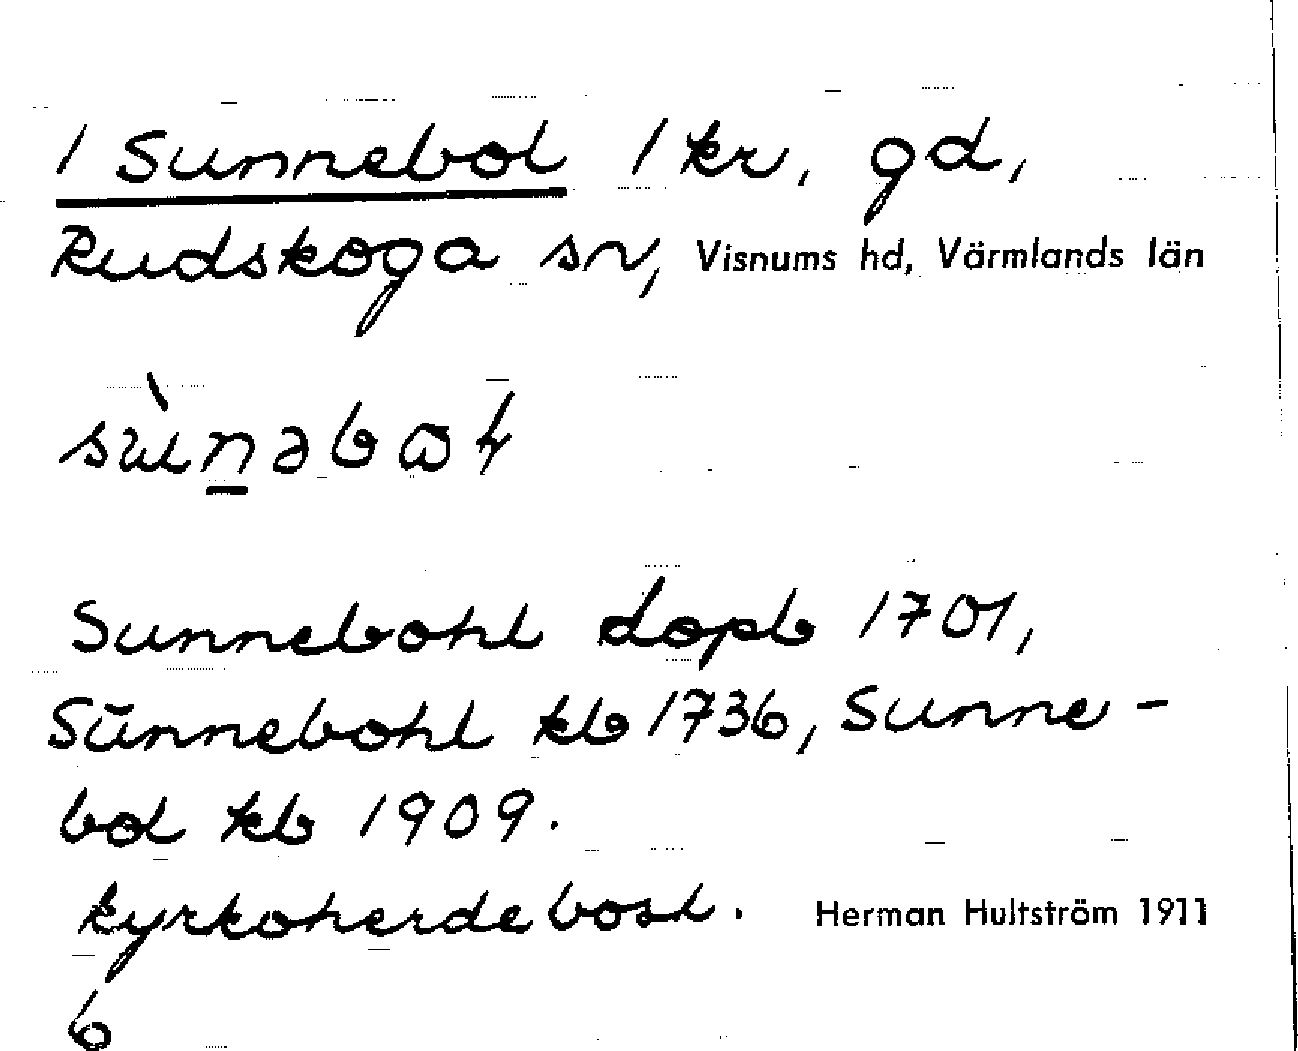 1 Sunnebol 1 kr, gd,
Rudskoga sn, Visnums hd, Värmlands län
sùn̲əbɷɫ
Sunnebohl dopb 1701,
Sŭnnebohl kb 1736, Sunne-
bol kb 1909.
kyrkoherdebost. Herman Hultström 1911
6